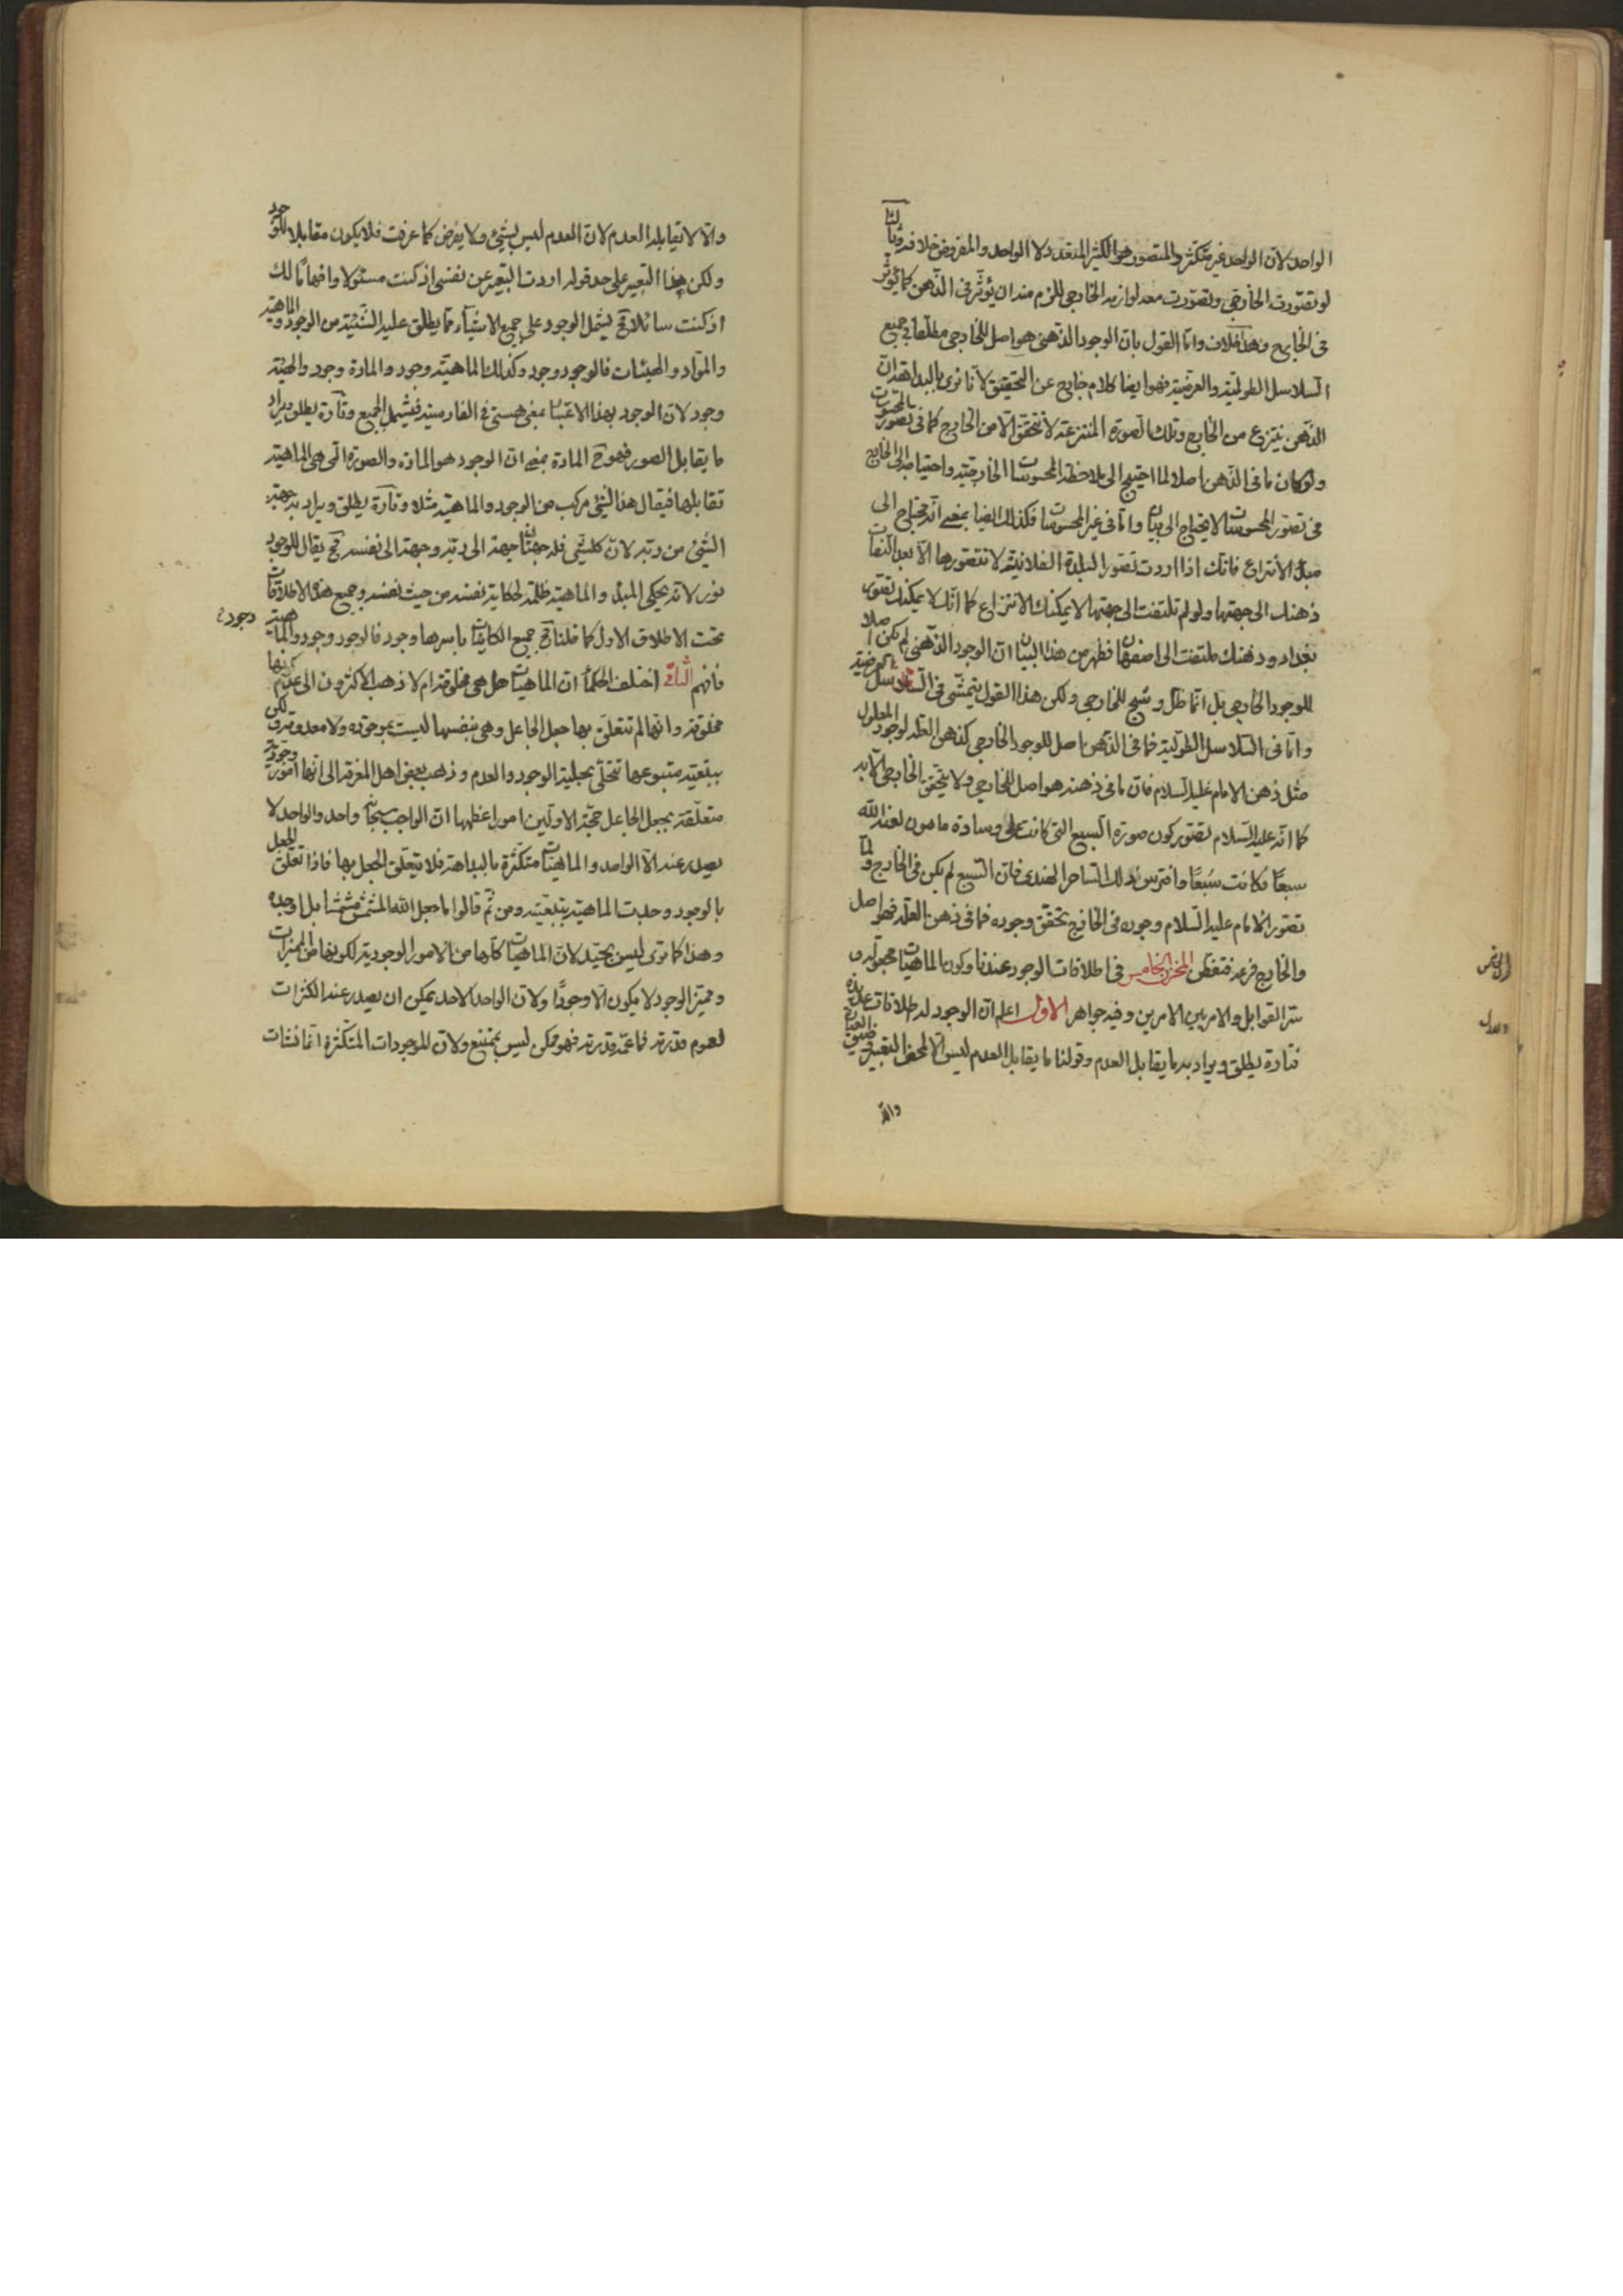 الواحد لان الواحد غير متكثر والمتصور هو الكثير المتعدد لا الواحد والمفروض خلافه وثالثا
لو تصورت الخارجي وتصورت معه لوازمه الخارجي للزم منه ان يؤثر في الذهن كما يؤثر
في الخارج وهذا خلاف واما القول بان الوجود الذهني هو اصل للخارجي مطلقا في جميع
السلاسل الطولية والعرضية فهو ايضا كلام خارج عن التحقيق لانا نرى بالبداهة ان
الذهن ينتزع من الخارج وتلك الصورة المنتزعة لا تتحقق الا من الخارج كما في تصور المحسوسات
ولو كان ما في الذهن اصلا لما احتيج الى ملاحظة المحسوسات الخارجية واحتياجه الى الخارج
في تصور المحسوسات لا يحتاج الى بيان واما في غير المحسوسات فكذلك ايضا بمعنى انه محتاج الى
مبدأ الانتزاع فانك اذا اردت تصور البلدة الفلانية لا تتصورها الا بعد التفات
ذهنك الى جهتها ولو لم تلتفت الى جهتها لا يمكنك الانتزاع كما انك لا يمكنك تصور
بغداد وذهنك ملتفت الى اصفهان فظهر من هذا البيان ان الوجود الذهني لم يكن اصلا
للوجود الخارجي بل انما ظل وشبح للخارجي ولكن هذا القول يتمشى في السلاسل العرضية
واما في السلاسل الطولية فما في الذهن اصل للوجود الخارجي كذهن العلة لوجود المعلول
مثل ذهن الامام عليه السلام فان ما في ذهنه هو اصل للخارجي ولا يتحقق الخارجي الا به
كما انه عليه السلام تصور كون صورة السبع التي كانت على وسادة مامون لعنه الله
سبعًا فكانت سبعًا وافترس ذلك الساحر الهندي فان السبع لم يكن في الخارج ولما
تصور الامام عليه السلام وجوده في الخارج تحقق وجوده فما في ذهن العلة فهو اصل
والخارج فرعه فتفطن المخزن الخامس في اطلاقات الوجود عندنا وكون الماهيات مجعولة و
سر القوابل والامر بين الامرين وفيه جواهر الاول اعلم ان الوجود له اطلاقات عديدة
فتارة يطلق ويراد به ما يقابل العدم وقولنا ما يقابل العدم ليس الا لمحض التعبير وضيق العبارة
والا
والا لا يقابله العدم لان العدم ليس بشيء ولا يفرض كما عرفت فلا يكون مقابلا للوجود
ولكن هذا التعبير على حد قوله اردت التعبير عن نفسي اذ كنت مسئولا وافهاما لك
اذ كنت سائلا فح يشمل الوجود على جميع الاشياء مما يطلق عليه الشيئية من الوجود والماهية
والمواد والهيئات فالوجود وجود وكذلك الماهية وجود والمادة وجود والهيئة
وجود لان الوجود بهذا الاعتبار بمعنى هستي في الفارسية فيشمل الجميع وتارة يطلق ويراد
ما يقابل الصور فهو ح المادة بمعنى ان الوجود هو المادة والصورة التي هي الماهية
تقابلها فيقال هذا الشيء مركب من الوجود والماهية مثلا وتارة يطلق ويراد به جهة
الشيء من ربه لان كل شيء فله جهتان جهة الى ربه وجهة الى نفسه فح يقال للوجود
نور لانه يحكي المبدأ والماهية ظلمة لحكاية نفسه من حيث نفسه وجميع هذه الاطلاقات
تحت الاطلاق الاول كما قلنا فح جميع الكاينات باسرها وجود فالوجود وجود والماهية وجود
فافهم الثاني اختلف الحكماء ان الماهيات هل هي مخلوقة ام لا ذهب الاكثرون الى عدم كونها
مخلوقة وانها لم تتعلق بها جعل الجاعل وهي بنفسها ليست بموجودة ولا معدومة ولكن
بتبعية متبوعها تتحلى بحلية الوجود والعدم وذهب بعض اهل المعرفة الى انها امور وجودية
متعلقة بجعل الجاعل حجة الاولين امور اعظمها ان الواجب سبحانه واحد والواحد لا
يصدر عنه الا الواحد والماهيات متكثرة بالبداهة فلا يتعلق الجعل بها فاذا تعلق الجعل
بالوجود وجدت الماهية بتبعيته ومن ثم قالوا ما جعل الله المشمش مشمشا بل اوجده
وهذا كما ترى ليس بجيد لان الماهيات كلها من الامور الوجودية لكونها من المميزات
ومميز الوجود لا يكون الا وجودًا ولان الواحد الاحد يمكن ان يصدر عنه الكثرات
لعموم قدرته فما عمه قدرته فهو ممكن ليس بممتنع ولان للموجودات المتكثرة انما نشات